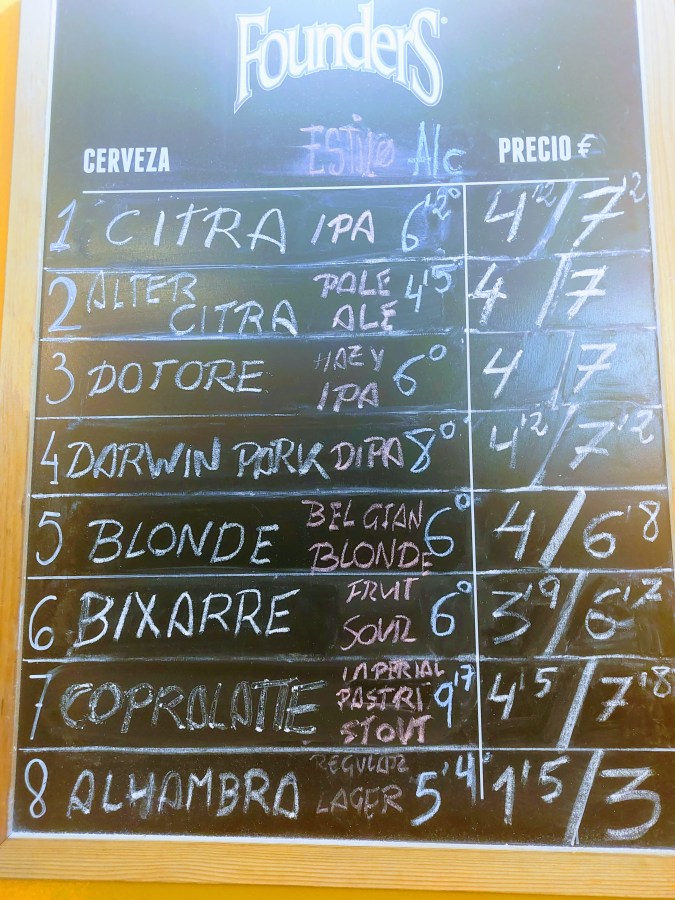 Founders
CERVEZA ESTILO Alc PRECIO €
1 CITRA IPA 6'2° 4'2/7'2
2 ALTER CITRA PALE ALE 4'5° 4/7
3 DOTORE HAZY IPA 6° 4/7
4 DARWIN PARK DIPA 8° 4'2/7'2
5 BLONDE BELGIAN BLONDE 6° 4/6'8
6 BIXARRE FRUIT SOUR 6° 3'9/6'2
7 COPROLATTE IMPERIAL PASTRI STOUT 9'17 4'5/7'8
8 ALHAMBRA REGULAR LAGER 5'4° 1'5/3